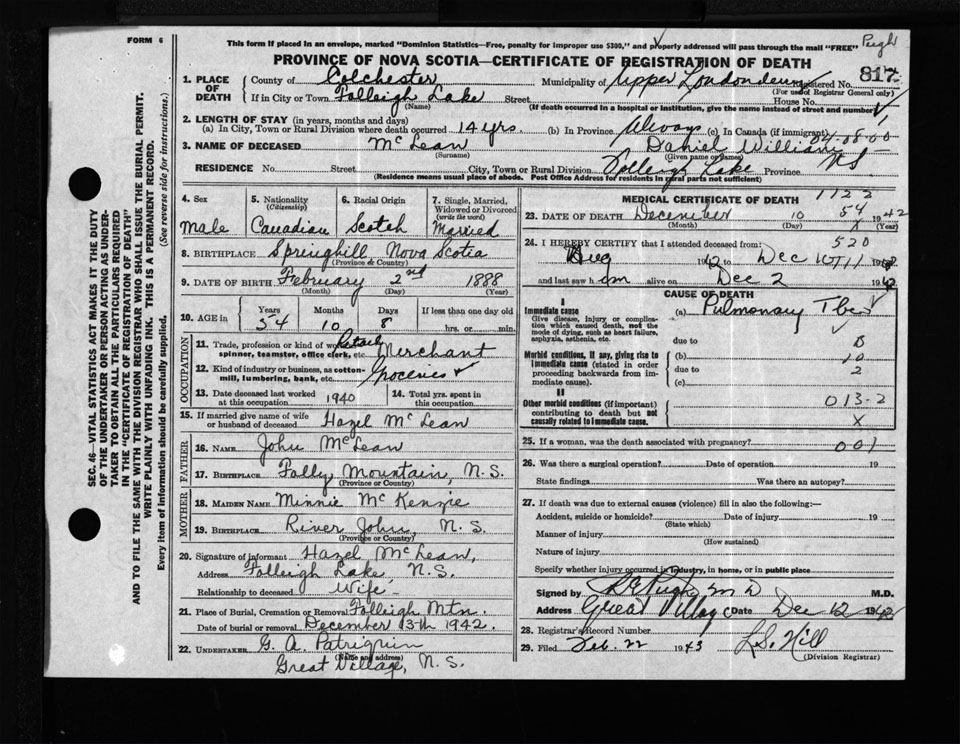 FORM 6
This form if placed in an envelope, marked "Dominion Statistics—Free, penalty for improper use $300," and properly addressed will pass through the mail "FREE"
Pugh
PROVINCE OF NOVA SCOTIA—CERTIFICATE OF REGISTRATION OF DEATH
817
1. PLACE OF DEATH County of Colchester Municipality of Upper Londonderry Registered No.
(For use of Registrar General only)
If in City or Town Folleigh Lake Street House No.
(Name) (If death occurred in a hospital or institution, give the name instead of street and number)
2. LENGTH OF STAY (in years, months and days)
(a) In City, Town or Rural Division where death occurred 14 yrs. (b) In Province Always (c) In Canada (if immigrant)
3. NAME OF DECEASED McLean Daniel William
(Surname) (Given name or names)
RESIDENCE No. Street City, Town or Rural Division Folleigh Lake Province N S
(Residence means usual place of abode. Post Office Address for residents in rural parts not sufficient)
4. Sex Male
5. Nationality (Citizenship) Canadian
6. Racial Origin Scotch
7. Single, Married, Widowed or Divorced (write the word) Married
8. BIRTHPLACE Springhill Nova Scotia
(Province & Country)
9. DATE OF BIRTH February 2nd 1888
(Month) (Day) (Year)
10. AGE in Years 54 Months 10 Days 8 If less than one day old hrs. or min.
OCCUPATION
11. Trade, profession or kind of work as spinner, teamster, office clerk, etc. Retail Merchant
12. Kind of industry or business, as cotton-mill, lumbering, bank, etc. Groceries +
13. Date deceased last worked at this occupation 1940
14. Total yrs. spent in this occupation
15. If married give name of wife or husband of deceased Hazel McLean
FATHER
16. NAME John McLean
17. BIRTHPLACE Folly Mountain, N.S.
(Province or Country)
MOTHER
18. MAIDEN NAME Minnie McKenzie
19. BIRTHPLACE River John, N.S.
(Province or Country)
20. Signature of informant Hazel McLean,
Address Folleigh Lake, N.S.
Relationship to deceased Wife
21. Place of Burial, Cremation or Removal Folleigh Mtn.
Date of burial or removal December 13th 1942.
22. UNDERTAKER G. A. Patriquin
(Name and address)
Great Village, N.S.
MEDICAL CERTIFICATE OF DEATH
1122
23. DATE OF DEATH December 10 1942
54
(Month) (Day) (Year)
24. I HEREBY CERTIFY that I attended deceased from:
520
Aug 1942 to Dec 10 1942
and last saw him alive on Dec 2 1942
CAUSE OF DEATH
I
Immediate cause
Give disease, injury or complication which caused death, not the mode of dying, such as heart failure, asphyxia, asthenia, etc.
(a) Pulmonary Tbc
due to
Morbid conditions, if any, giving rise to immediate cause (stated in order proceeding backwards from immediate cause).
(b) 10
due to 2
(c)
II
Other morbid conditions (if important) contributing to death but not causally related to immediate cause.
013-2
X
25. If a woman, was the death associated with pregnancy? 001
26. Was there a surgical operation? Date of operation 19
State findings Was there an autopsy?
27. If death was due to external causes (violence) fill in also the following:—
Accident, suicide or homicide? Date of injury 19
(State which)
Manner of injury
(How sustained)
Nature of injury
Specify whether injury occurred in industry, in home, or in public place
Signed by Pugh M D M.D.
Address Great Village Date Dec 12 1942
28. Registrar's Record Number
29. Filed Feb. 22 1943 L.S. Hill
(Division Registrar)
SEC. 46—VITAL STATISTICS ACT MAKES IT THE DUTY OF THE UNDERTAKER OR PERSON ACTING AS UNDERTAKER TO OBTAIN ALL THE PARTICULARS REQUIRED IN THE "CERTIFICATE OF REGISTRATION OF DEATH" AND TO FILE THE SAME WITH THE DIVISION REGISTRAR WHO SHALL ISSUE THE BURIAL PERMIT.
WRITE PLAINLY WITH UNFADING INK. THIS IS A PERMANENT RECORD.
Every item of information should be carefully supplied. (See reverse side for instructions.)